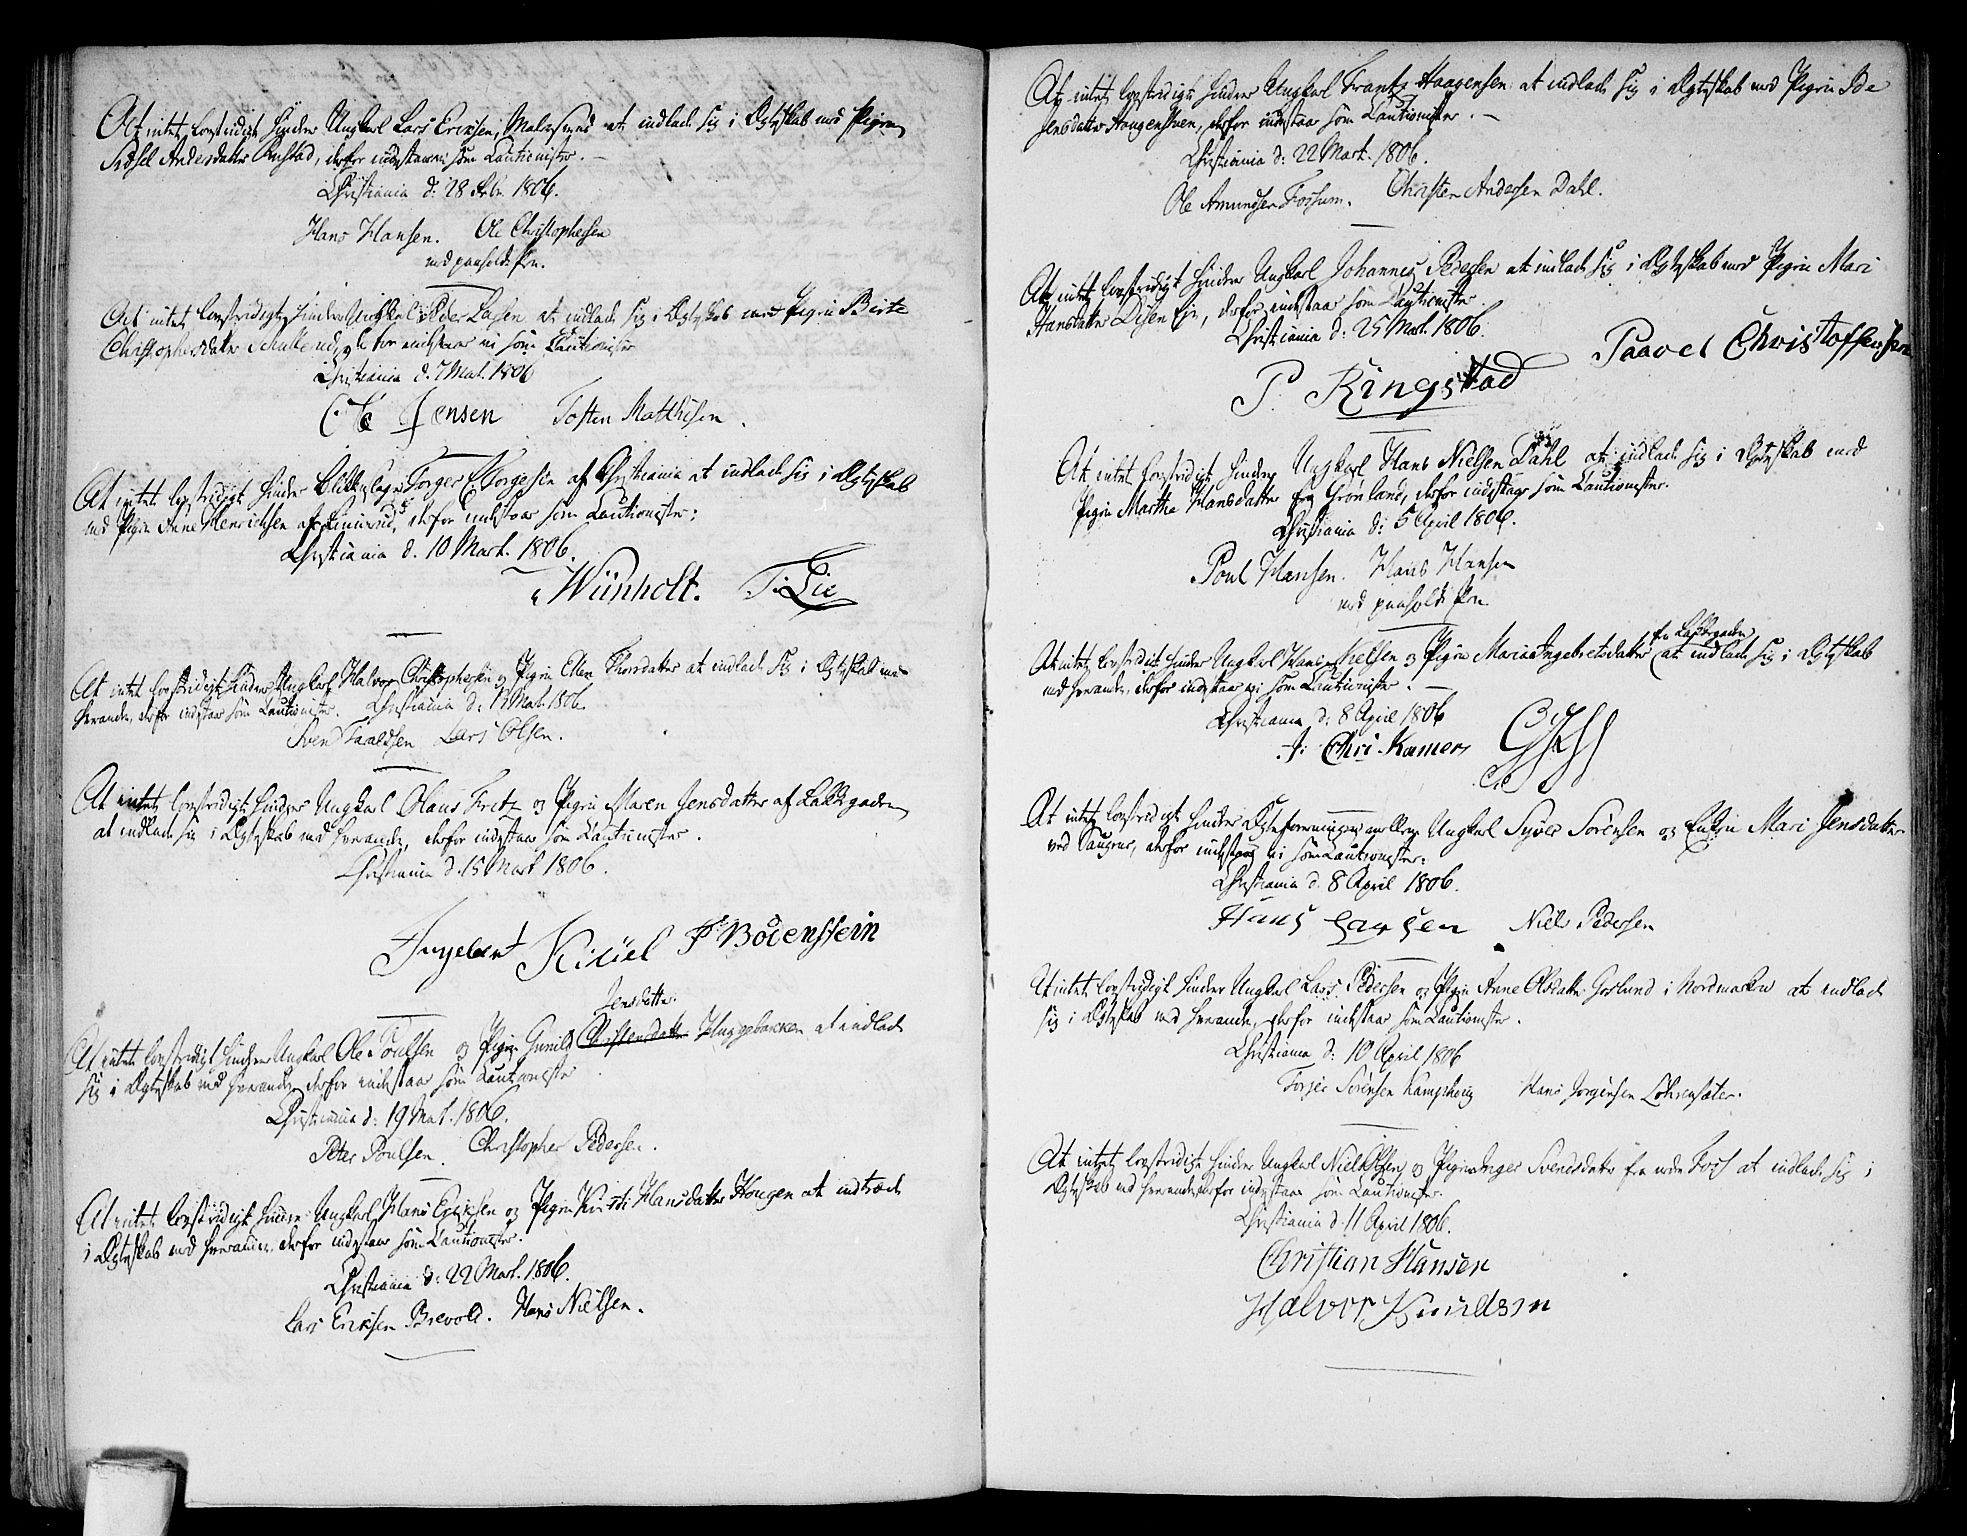 At intet lovstridigt hindrer Ungkarl Lars Ericksen at indlade sig i Ægteskab med Pigen
Sidsel Andersdatter derfor indestaaer som Cautionister. –
Christiania d: 28 Febr. 1806.
Hans Hansen. Ole Christophersen
med paaholdt Pen.
At intet lovstridigt hindrer Ungkarl Peder Larsen at indlade sig i Ægteskab med Pigen Berte
Christophersdatter derfor indestaaer vi som Cautionister
Christiania d. 7 Mart. 1806
Ole Jensen Tosten Matthisen.
At intet lovstridigt hindrer Torger Torgersen af Christiania at indlade sig i Ægteskab
med Pigen Anne Henrichsen af derfor indestaaer som Cautionister:
Christiania d. 10 Mart. 1806.
Wünholt. T: Lie
At intet lovstridigt hindrer Ungkarl Halvor Christophersen og Pigen Ellen Thordatter at indlade sig i Ægteskab med
hverandre, derfor indestaaer som Cautionister. Christiania d: Mart. 1806.
Sven Lars Olsen.
At intet lovstridigt hindrer Ungkarl Claus Fretz og Pigen Maren Jensdatter af Lakkegaden
at indlade sig i Ægteskab med hverandre, derfor indestaaer som Cautionister.
Christiania d. 15 Mart 1806.
Ingebret Kisüel P: Bödenstein
Jensdatter
At intet lovstridigt hindrer Ungkarl Ole Poulsen og Pigen Gunild Christensdatter Huggebakken at indlade
sig i Ægteskab med hverandre derfor indestaaer som Cautionister
Christiania d: 19 Mart. 1806.
Peter Poulsen. Christopher Pedersen.
At intet lovstridigt hindrer Ungkarl Hans Ericksen og Pigen Kirsti Hansdatter Hougen at indtræde
i Ægteskab med hverandre, derfor indestaaer som Cautionister.
Christiania d: 22 Mart. 1806.
Lars Ericksen Brevold. Hans Nielsen.
At intet lovstridigt hindrer Ungkarl Frantz Haagensen at indlade sig i Ægteskab med Pigen Ide
Jensdatter Haugenstuen, derfor indestaaer som Cautionister. –
Christiania d: 22 Mart. 1806.
Ole Amundsen Fossum. Christen Andersen Dahl.
At intet lovstridigt hindrer Ungkarl Johannes Pedersen at indlade sig i Ægteskab med Pigen Mari
Hansdatter Disen Eje, derfor indestaaer som Cautionister
Christiania d: 25 Mart. 1806.
P. Ringstad Paavel Christoffersen
At intet lovstridigt hindrer Ungkarl Hans Nielsen Dahl at indlade sig i Ægteskab med
Pigen Martha Hansdatter fra Grønland, derfor indestaaer som Cautionister.
Christiania d: 5 April 1806.
Poul Hansen. Hans Hansen
med paaholdt Pen.
fra Lakkegaden
At intet lovstridigt hindrer Ungkarl Hans Nielsen og Pigen Maria Ingebretsdatter at indlade sig i Ægteskab
med hverandre, derfor indestaaer vi som Cautionister. –
Christiania d: 8 April 1806
Chri Kamers
At intet lovstridigt hindrer Ægteforeningen mellem Ungkarl Syver Sörensen og Enken Mari Jensdatter
ved Saugene, derfor indestaaer vi som Cautionister:
Christiania d. 8 April 1806.
Hans Larsen Niels Pedersen
At intet lovstridigt hindrer Ungkarl Lars Pedersen og Pigen Anne Olsdatter i Nordmarken at indlade
sig i Ægteskab med hverandre, derfor indestaaer som Cautionister.
Christiania d: 10 April 1806
Torger Sörensen Kamphoug Hans Jorgensen
At intet lovstridigt hindrer Ungkarl Niels Olsen og Pigen Inger Svendsdatter fra nedre Foss at indlade sig i
Ægteskab med hverandre, derfor indestaaer som Cautionister.
Christiania d. 11 April 1806.
Christian Hansen
Halvor Knudsen